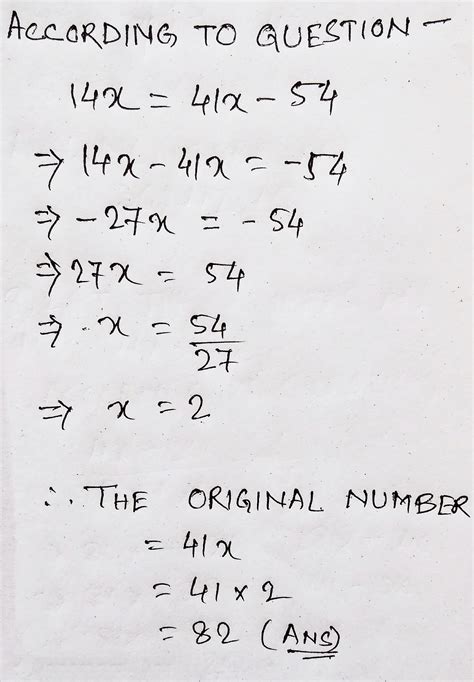 ACCORDING TO QUESTION —
14x = 41x - 54
⇒ 14x - 41x = -54
⇒ -27x = -54
⇒ 27x = 54
⇒ x = 54/27
⇒ x = 2
∴ THE ORIGINAL NUMBER
= 41x
= 41 × 2
= 82 (ANS)